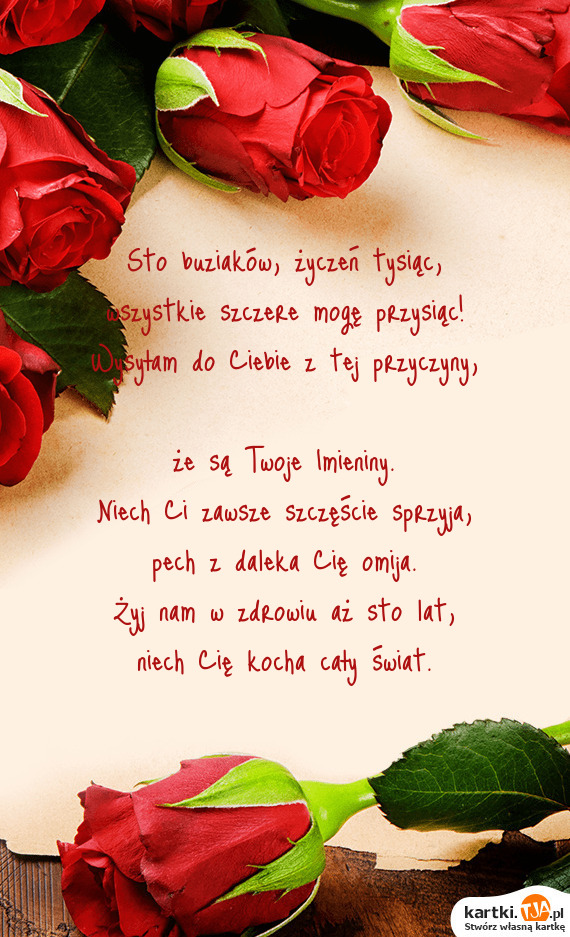 Sto buziaków, życzeń tysiąc,
wszystkie szczere mogę przysiąc!
Wysyłam do Ciebie z tej przyczyny,
że są Twoje Imieniny.
Niech Ci zawsze szczęście sprzyja,
pech z daleka Cię omija.
Żyj nam w zdrowiu aż sto lat,
niech Cię kocha cały świat.
kartki.TJA.pl
Stwórz własną kartkę